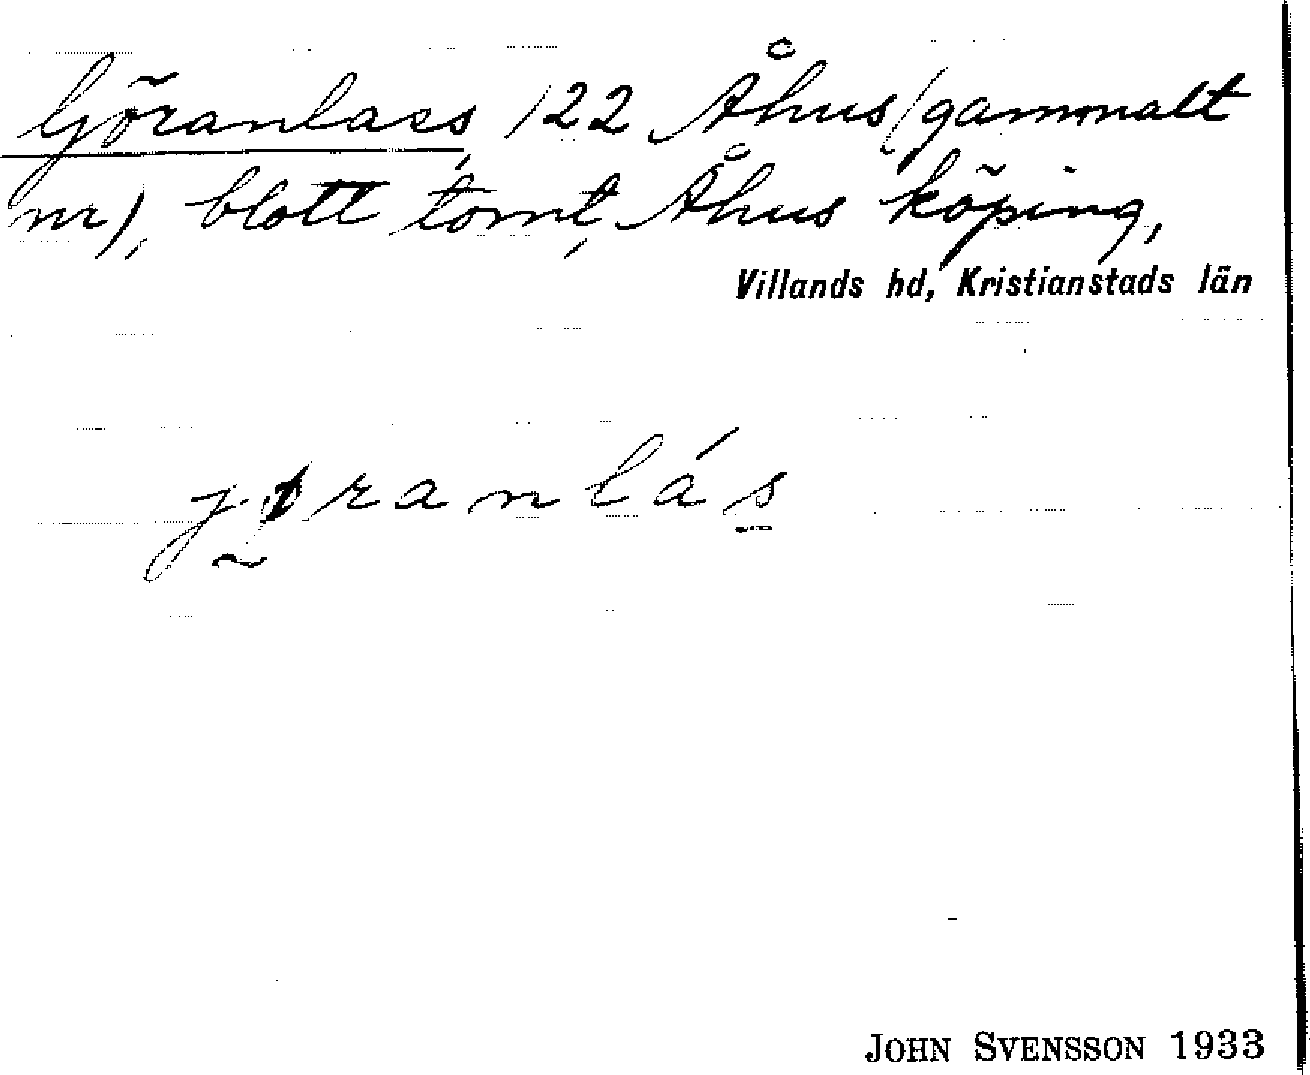 Göranlass, 122 Åhus (gammalt
nr), blott tomt, Åhus köping,
Villands hd, Kristianstads län
JOHN SVENSSON 1933